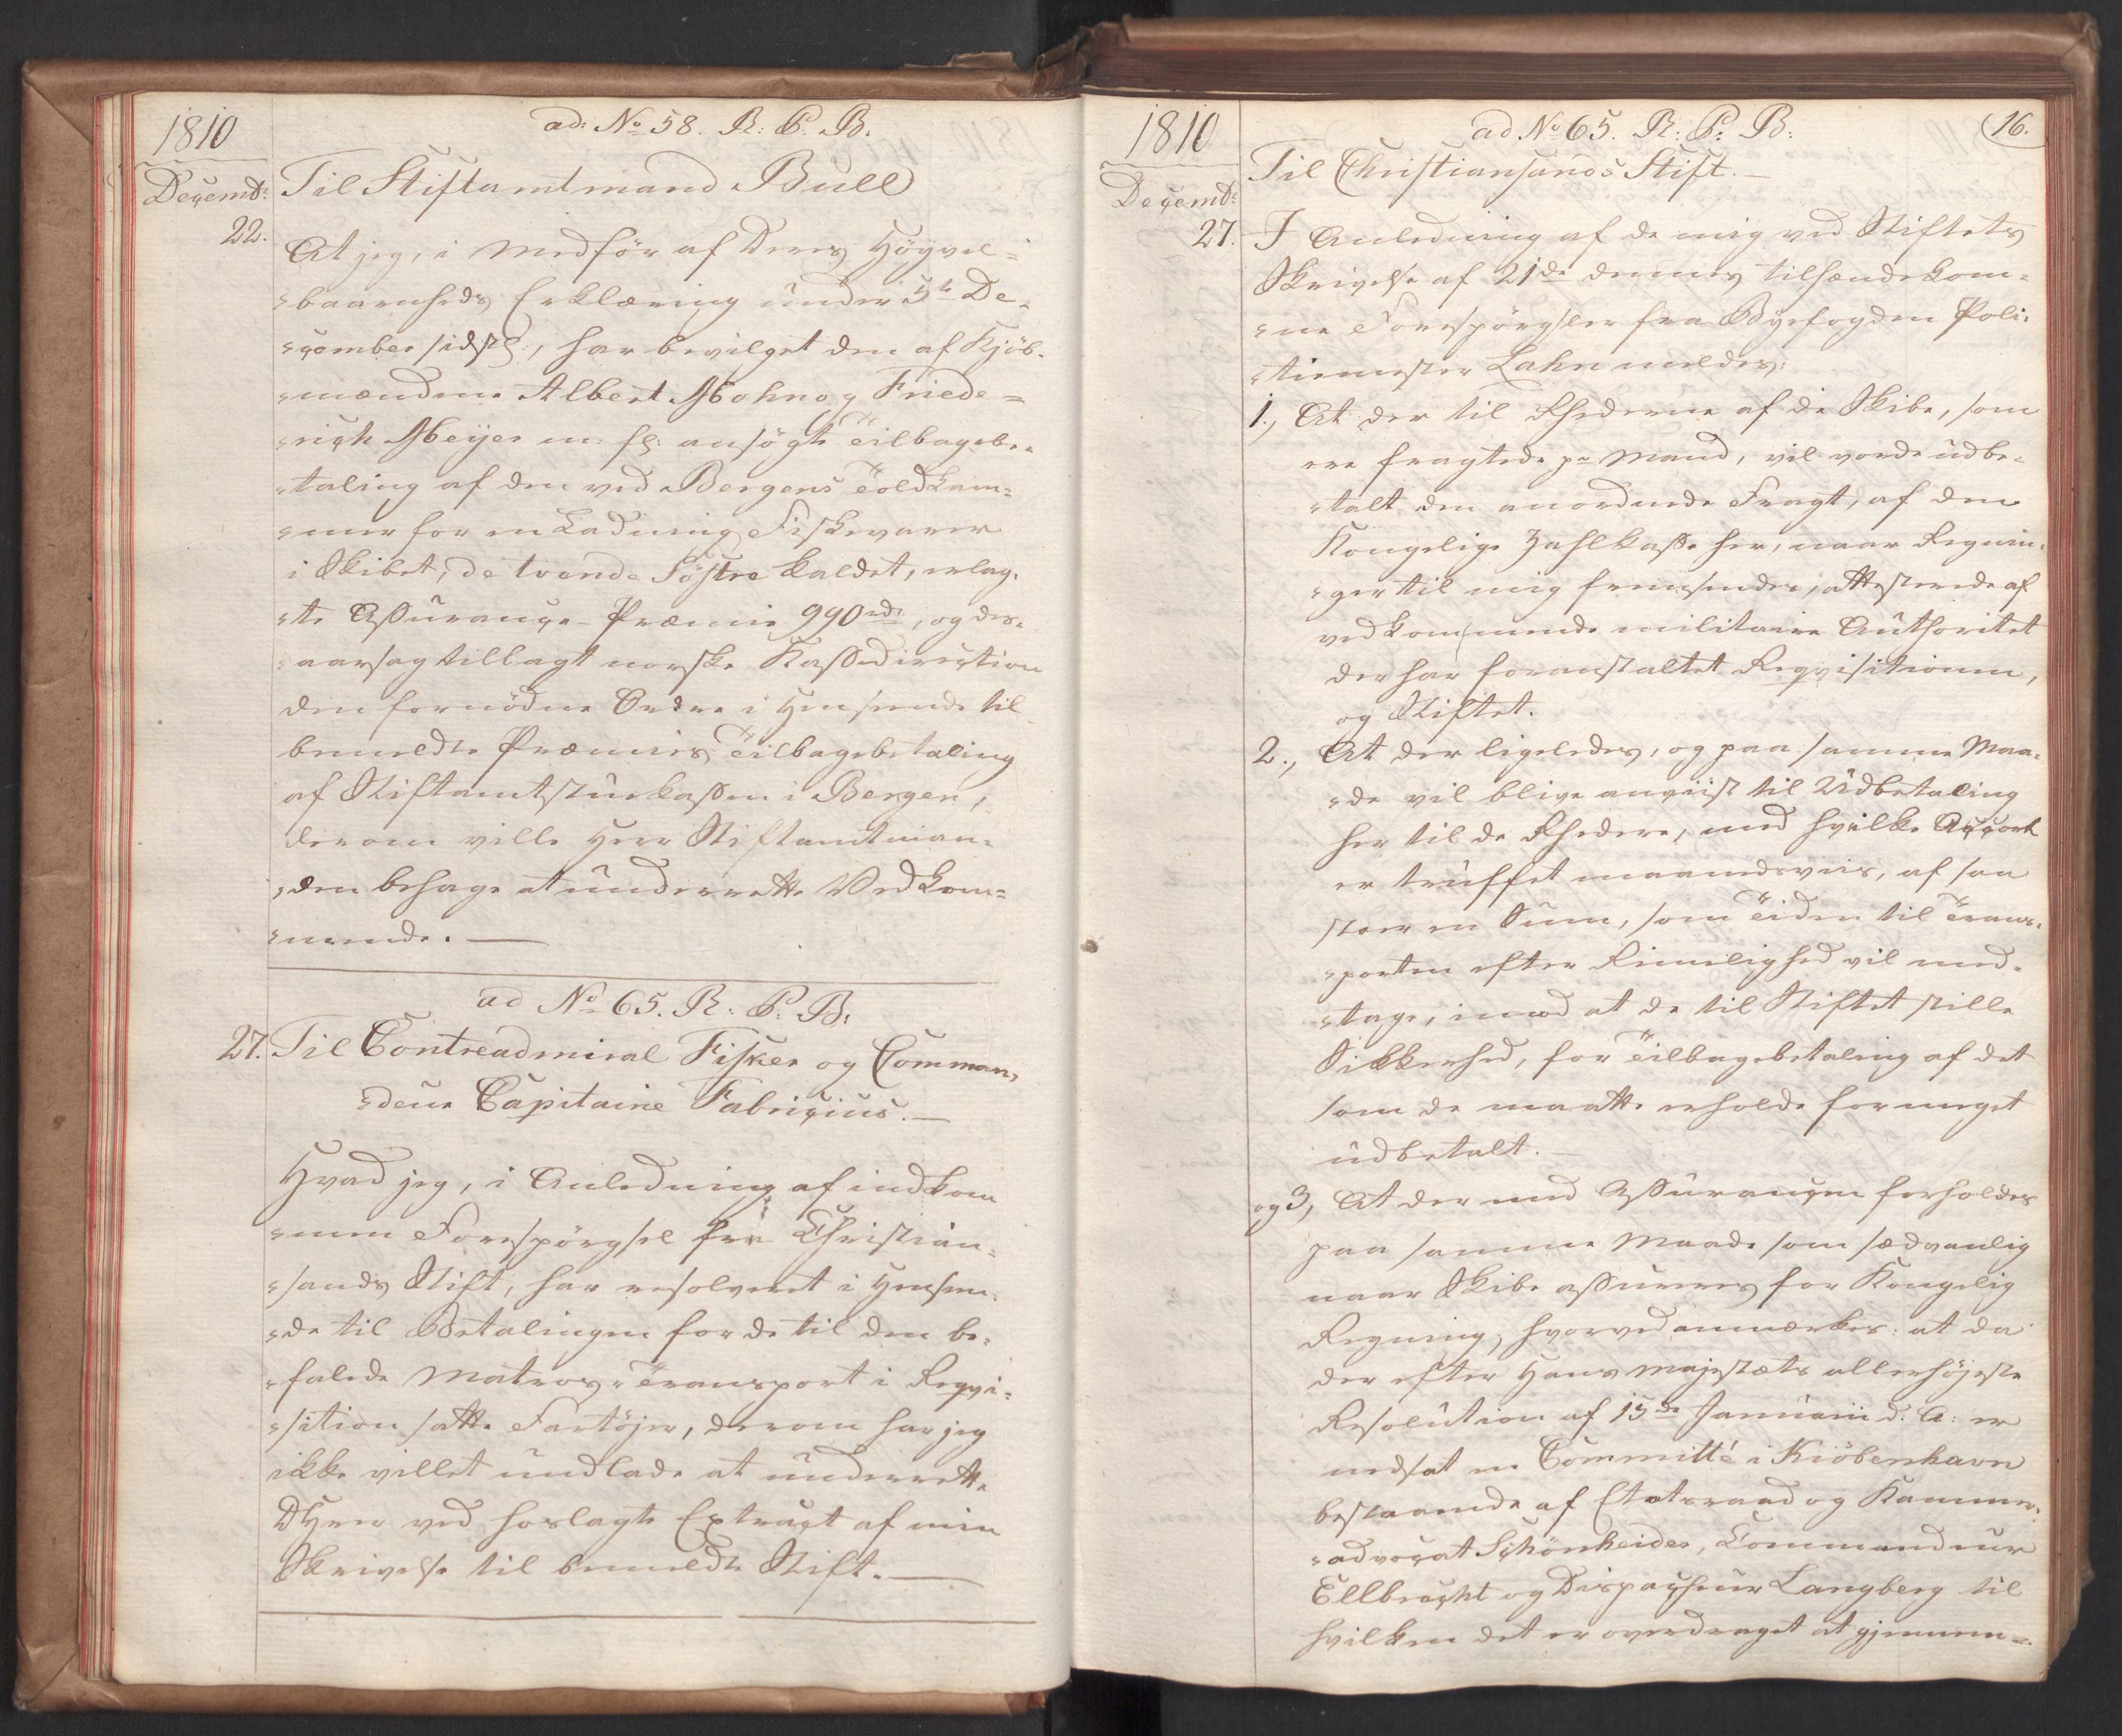 1810
ad: No 58. R: C. B:
Decembr:
Til Stiftamtmand Bull
22.
At jeg, i Medför af Deres Höyvel=
=baarenheds Erklæring under 5te De=
=cember sidstl:, har bevilget den af Kjöb=
=mændene Albert Mohn og Friede=
=rich Meyer m: fl: ansögte Tilbagebe=
=taling af den ved Bergens Toldkam=
=mer for en Ladning Fiskevarer
i Skibet, de tvende Söstre kaldet, erlag=
=te Assurance-Præmie 990rd:, og des=
=aarsag tillagt norske Kassedirection
den fornödne Ordre i Henseende til
bemeldte Præmies Tilbagebetaling
af Stiftamtstuekassen i Bergen,
derom ville Herr Stiftamtman=
=den behage at underrette Vedkom=
=mende. —
ad No 65. R: C. B:
27. Til Contreadmiral Fisker og Comman=
=deur Capitaine Fabricius. —
Hvad jeg, i Anledning af indkom
=men Forespörgsel fra Christian=
=sands Stift, har resolveret i Hensee=
=de til Betalingen for de til den be=
=falede Matros-Transport i Reqvi=
=sition satte Fartöjer, derom har jeg
ikke villet undlade at underrette
DHerr ved hoslagte Extract af min
Skrivelse til bemeldte Stift. —
1810
ad No 65. R: C: B:
16.
Decembr:
Til Christiansands Stift. —
27.
I Anledning af de mig ved Stiftets
Skrivelse af 21de dennes tilsændekom=
=ne Forespörgsler fra Byefogden Poli=
=tiemester Lahn meldes:
1., At der til Rhederne af de Skibe, som
ere fragtede pr Mand, vil vorde udbe=
=talt den anordnede Fragt, af den
Kongelige Zahlkasse her, naar Regnin=
=ger til mig fremsendes, attesterede af
vedkommende militaire Authoritet
der har foranstaltet Reqvisitionen,
og Stiftet.
2., At der ligeledes, og paa samme Maa=
=de vil blive anviist til Udbetaling
her til de Rhedere, med hvilke Accort
er truffet maanedsviis, af saa
stor en Sum, som Tiden til Trans=
=porten efter Rimelighed vil med=
=tage, imod at de til Stiftet stille
Sikkerhed, for Tilbagebetaling af det
som de maatte erholde formeget
udbetalt. —
og 3, At der med Assurancen forholdes
paa samme Maade som sædvanlig
naar Skibe assureres for Kongelig
Regning, hvorved anmærkes: at da
der efter Hans Majestæts allerhöjeste
Resolution af 15de Januarii d: A: er
nedsat en Committé i Kiöbenhavn
bestaaende af Etatsraad og Kammer=
=advocat Schönheider, Commandeur
Ellbracht og Dispacheur Langberg til
hvilken det er overdraget at gjennem=